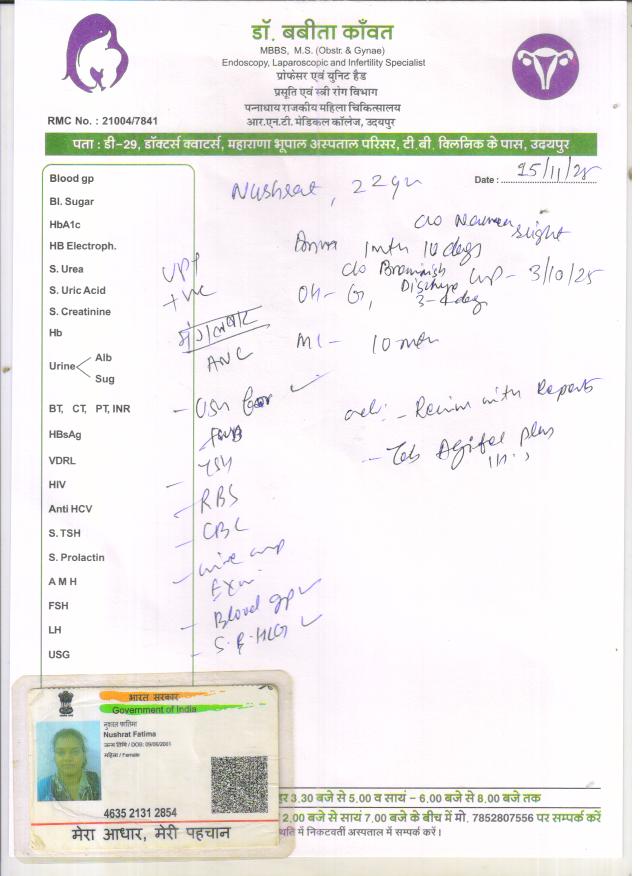 डॉ. बबीता काँवत
MBBS, M.S. (Obstr. & Gynae)
Endoscopy, Laparoscopic and Infertility Specialist
प्रोफेसर एवं यूनिट हैड
प्रसूति एवं स्त्री रोग विभाग
पन्नाधाय राजकीय महिला चिकित्सालय
आर.एन.टी. मेडिकल कॉलेज, उदयपुर
RMC No. : 21004/7841
पता : डी-29, डॉक्टर्स क्वाटर्स, महाराणा भूपाल अस्पताल परिसर, टी.बी. क्लिनिक के पास, उदयपुर
Date : 25/11/25
Nushrat, 22yr
Blood gp
Bl. Sugar
HbA1c
HB Electroph.
S. Urea
S. Uric Acid
S. Creatinine
Hb
Urine Alb
Sug
BT, CT, PT, INR
HBsAg
VDRL
HIV
Anti HCV
S. TSH
S. Prolactin
A M H
FSH
LH
USG
UPT
+ve
मंगलवार
ANC
TSH
RBS
CBC
Blood gp
S. B-HCG
c/o
slight
1 mth 10 days
c/o Brownish
Discharge
3-4 days
LMP - 3/10/25
OH- G1
ML- 10 mon
adv: - Review with Reports
- Tab
plus
भारत सरकार
Government of India
Nushrat Fatima
जन्म तिथि / DOB: 09/06/2001
महिला / Female
4635 2131 2854
मेरा आधार, मेरी पहचान
3.30 बजे से 5.00 व सायं – 6.00 बजे से 8.00 बजे तक
2.00 बजे से सायं 7.00 बजे के बीच में मो. 7852807556 पर सम्पर्क करें
में निकटवर्ती अस्पताल में सम्पर्क करें।